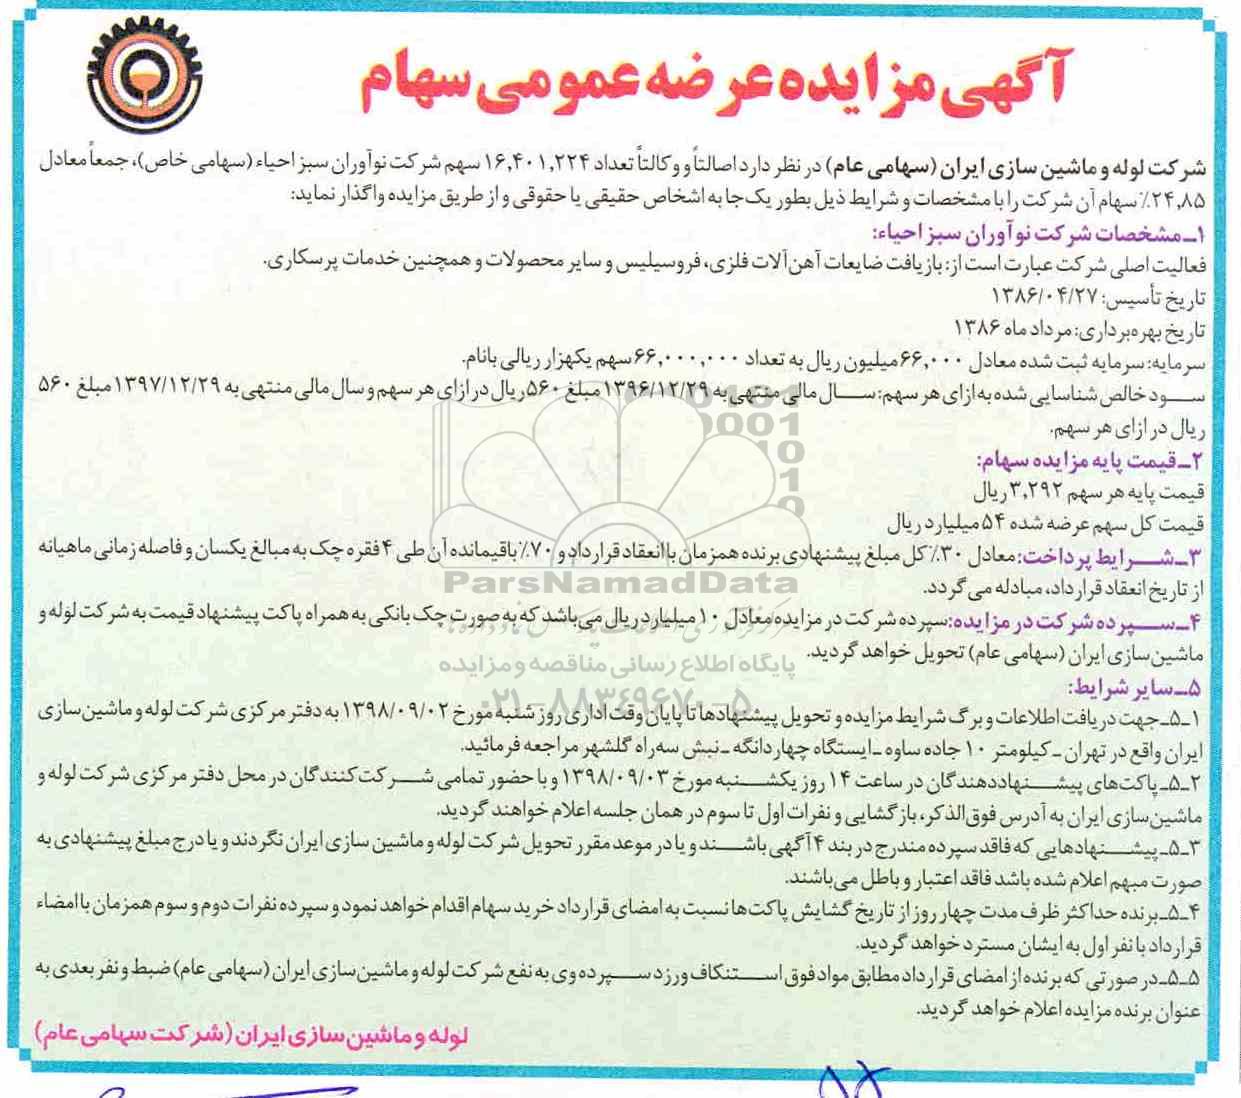 آگهی مزایده عرضه عمومی سهام
شرکت لوله و ماشین سازی ایران (سهامی عام) در نظر دارد اصالتاً و وکالتاً تعداد ۱۶,۴۰۱,۲۲۴ سهم شرکت نوآوران سبز احیاء (سهامی خاص)، جمعاً معادل
۲۴,۸۵٪ سهام آن شرکت را با مشخصات و شرایط ذیل بطور یک‌جا به اشخاص حقیقی یا حقوقی و از طریق مزایده واگذار نماید:
۱ـ مشخصات شرکت نوآوران سبز احیاء:
فعالیت اصلی شرکت عبارت است از: بازیافت ضایعات آهن‌آلات فلزی، فروسیلیس و سایر محصولات و همچنین خدمات پرسکاری.
تاریخ تأسیس: ۱۳۸۶/۰۴/۲۷
تاریخ بهره‌برداری: مرداد ماه ۱۳۸۶
سرمایه: سرمایه ثبت شده معادل ۶۶,۰۰۰ میلیون ریال به تعداد ۶۶,۰۰۰,۰۰۰ سهم یکهزار ریالی بانام.
سود خالص شناسایی شده به‌ازای هر سهم: سال مالی منتهی به ۱۳۹۶/۱۲/۲۹ مبلغ ۵۶۰ ریال در ازای هر سهم و سال مالی منتهی به ۱۳۹۷/۱۲/۲۹ مبلغ ۵۶۰
ریال در ازای هر سهم.
۲ـ قیمت پایه مزایده سهام:
قیمت پایه هر سهم ۳,۲۹۲ ریال
قیمت کل سهم عرضه شده ۵۴ میلیارد ریال
۳ـ شرایط پرداخت: معادل ۳۰٪ کل مبلغ پیشنهادی برنده همزمان با انعقاد قرارداد و ۷۰٪ باقیمانده آن طی ۴ فقره چک به مبالغ یکسان و فاصله زمانی ماهیانه
از تاریخ انعقاد قرارداد، مبادله می‌گردد.
۴ـ سپرده شرکت در مزایده: سپرده شرکت در مزایده معادل ۱۰ میلیارد ریال می‌باشد که به صورت چک بانکی به همراه پاکت پیشنهاد قیمت به شرکت لوله و
ماشین‌سازی ایران (سهامی عام) تحویل خواهد گردید.
۵ـ سایر شرایط:
۱ـ۵ـ جهت دریافت اطلاعات و برگ شرایط مزایده و تحویل پیشنهادها تا پایان وقت اداری روز شنبه مورخ ۱۳۹۸/۰۹/۰۲ به دفتر مرکزی شرکت لوله و ماشین‌سازی
ایران واقع در تهران ـ کیلومتر ۱۰ جاده ساوه ـ ایستگاه چهاردانگه ـ نبش سه‌راه گلشهر مراجعه فرمائید.
۲ـ۵ـ پاکت‌های پیشنهاددهندگان در ساعت ۱۴ روز یکشنبه مورخ ۱۳۹۸/۰۹/۰۳ و با حضور تمامی شرکت‌کنندگان در محل دفتر مرکزی شرکت لوله و
ماشین‌سازی ایران به آدرس فوق‌الذکر، بازگشایی و نفرات اول تا سوم در همان جلسه اعلام خواهند گردید.
۳ـ۵ـ پیشنهادهایی که فاقد سپرده مندرج در بند ۴ آگهی باشند و یا در موعد مقرر تحویل شرکت لوله و ماشین سازی ایران نگردند و یا درج مبلغ پیشنهادی به
صورت مبهم اعلام شده باشد فاقد اعتبار و باطل می‌باشند.
۴ـ۵ـ برنده حداکثر ظرف مدت چهار روز از تاریخ گشایش پاکت‌ها نسبت به امضای قرارداد خرید سهام اقدام خواهد نمود و سپرده نفرات دوم و سوم همزمان با امضاء
قرارداد با نفر اول به ایشان مسترد خواهد گردید.
۵ـ۵ـ در صورتی که برنده از امضای قرارداد مطابق مواد فوق استنکاف ورزد سپرده وی به نفع شرکت لوله و ماشین‌سازی ایران (سهامی عام) ضبط و نفر بعدی به
عنوان برنده مزایده اعلام خواهد گردید.
لوله و ماشین‌سازی ایران (شرکت سهامی عام)
ParsNamadData
پایگاه اطلاع رسانی مناقصه و مزایده
۰۲۱-۸۸۳۴۹۶۷۰-۵